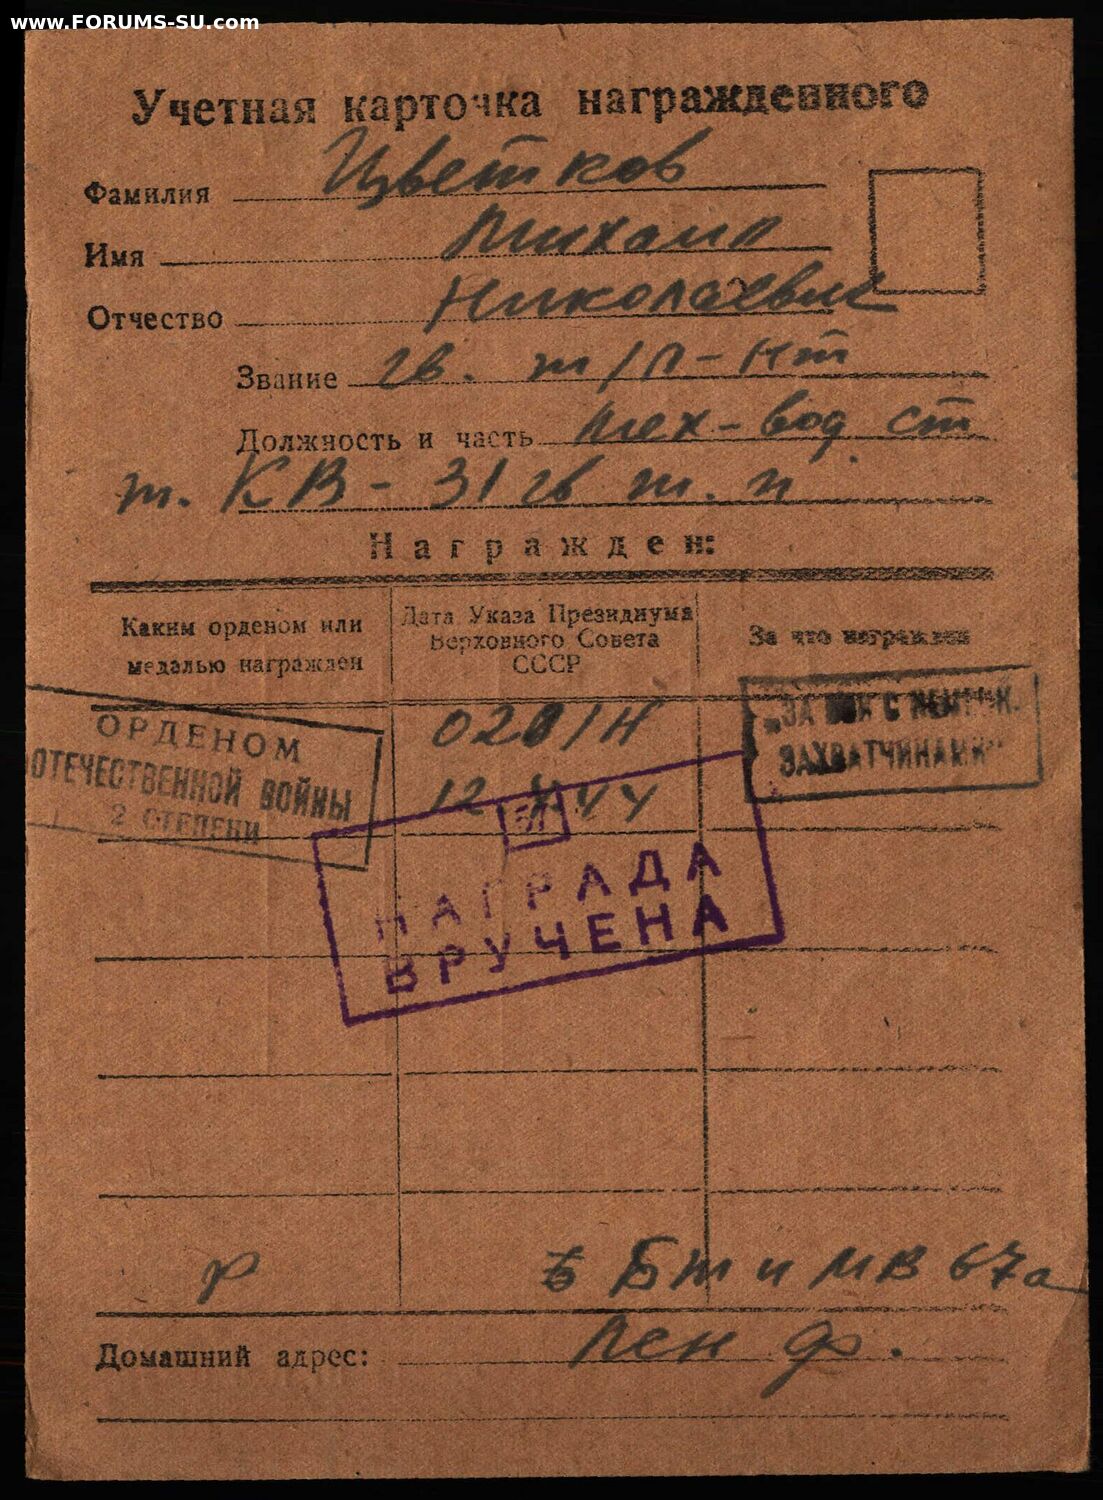 www.FORUMS-SU.com
Учетная карточка награжденного
Фамилия Цветков
Имя Михаил
Отчество Николаевич
Звание гв. т/л-нт
Должность и часть мех-вод ст
т. КВ - 31 гв т. п
Награжден:
Каким орденом или медалью награжден
Дата Указа Президиума Верховного Совета СССР
За что награжден
ОРДЕНОМ
ОТЕЧЕСТВЕННОЙ ВОЙНЫ
2 СТЕПЕНИ
020/Н
12. 44
„ЗА БОИ С НЕМЕЦК.
ЗАХВАТЧИКАМИ"
НАГРАДА
ВРУЧЕНА
Б БТ и МВ 67а
Домашний адрес: Лен ф.